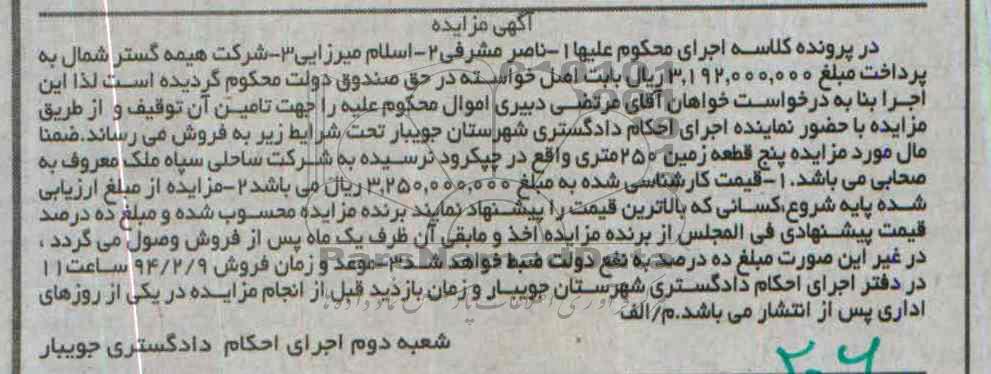 آگهی مزایده
در پرونده کلاسه اجرای محکوم علیها ۱-ناصر مشرفی۲-اسلام میرزایی۳-شرکت هیمه گستر شمال به
پرداخت مبلغ ۳,۱۹۲,۰۰۰,۰۰۰ ریال بابت اصل خواسته در حق صندوق دولت محکوم گردیده است لذا این
اجرا بنا به درخواست خواهان آقای مرتضی دبیری اموال محکوم علیه را جهت تامین آن توقیف و از طریق
مزایده با حضور نماینده اجرای احکام دادگستری شهرستان جویبار تحت شرایط زیر به فروش می رساند.ضمنا
مال مورد مزایده پنج قطعه زمین ۲۵۰متری واقع در چپکرود نرسیده به شرکت ساحلی سپاه ملک معروف به
صحابی می باشد.۱-قیمت کارشناسی شده به مبلغ ۳,۲۵۰,۰۰۰,۰۰۰ ریال می باشد۲-مزایده از مبلغ ارزیابی
شده پایه شروع،کسانی که بالاترین قیمت را پیشنهاد نمایند برنده مزایده محسوب شده و مبلغ ده درصد
قیمت پیشنهادی فی المجلس از برنده مزایده اخذ و مابقی آن ظرف یک ماه پس از فروش وصول می گردد ،
در غیر این صورت مبلغ ده درصد به نفع دولت ضبط خواهد شد۳-موعد و زمان فروش ۹۴/۲/۹ ساعت۱۱
در دفتر اجرای احکام دادگستری شهرستان جویبار و زمان بازدید قبل از انجام مزایده در یکی از روزهای
اداری پس از انتشار می باشد.م/الف
شعبه دوم اجرای احکام دادگستری جویبار
۲۰۶